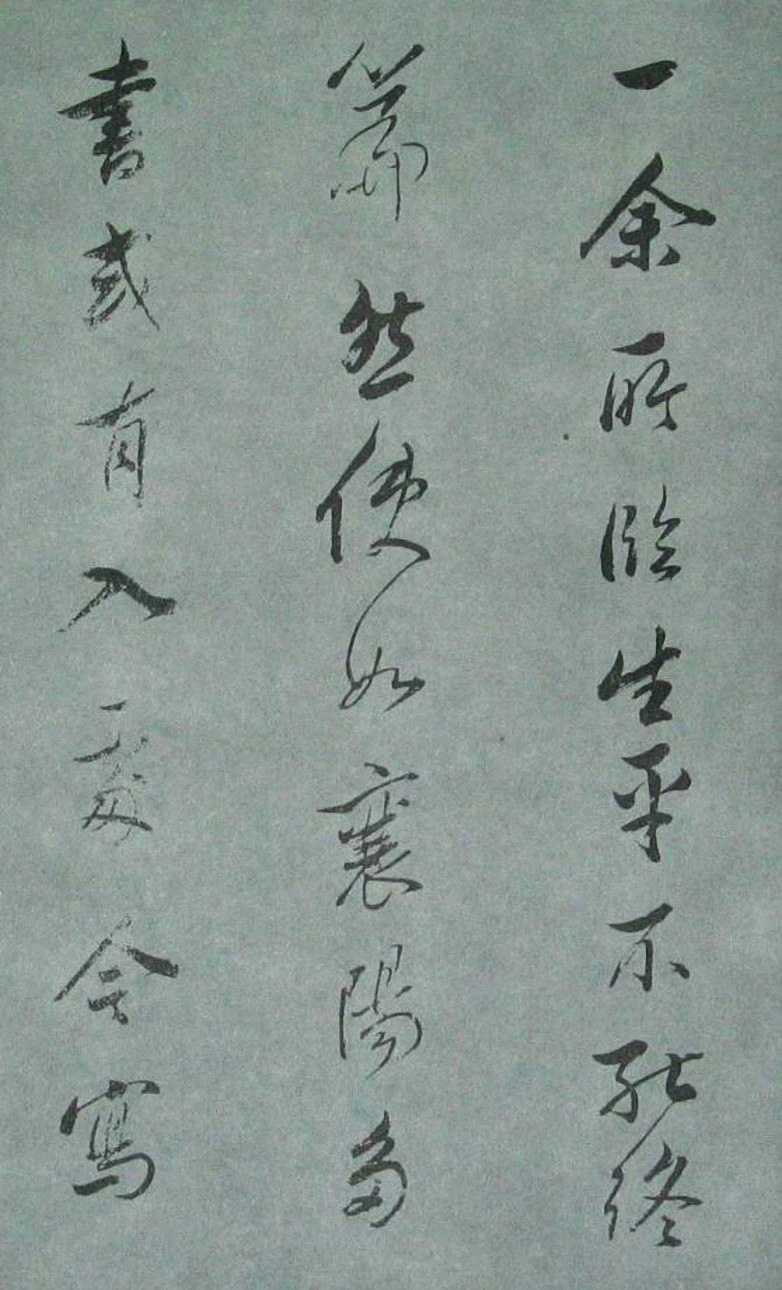 一余所臨生平不能終
篇然使如襄陽多
書或有入處今寫